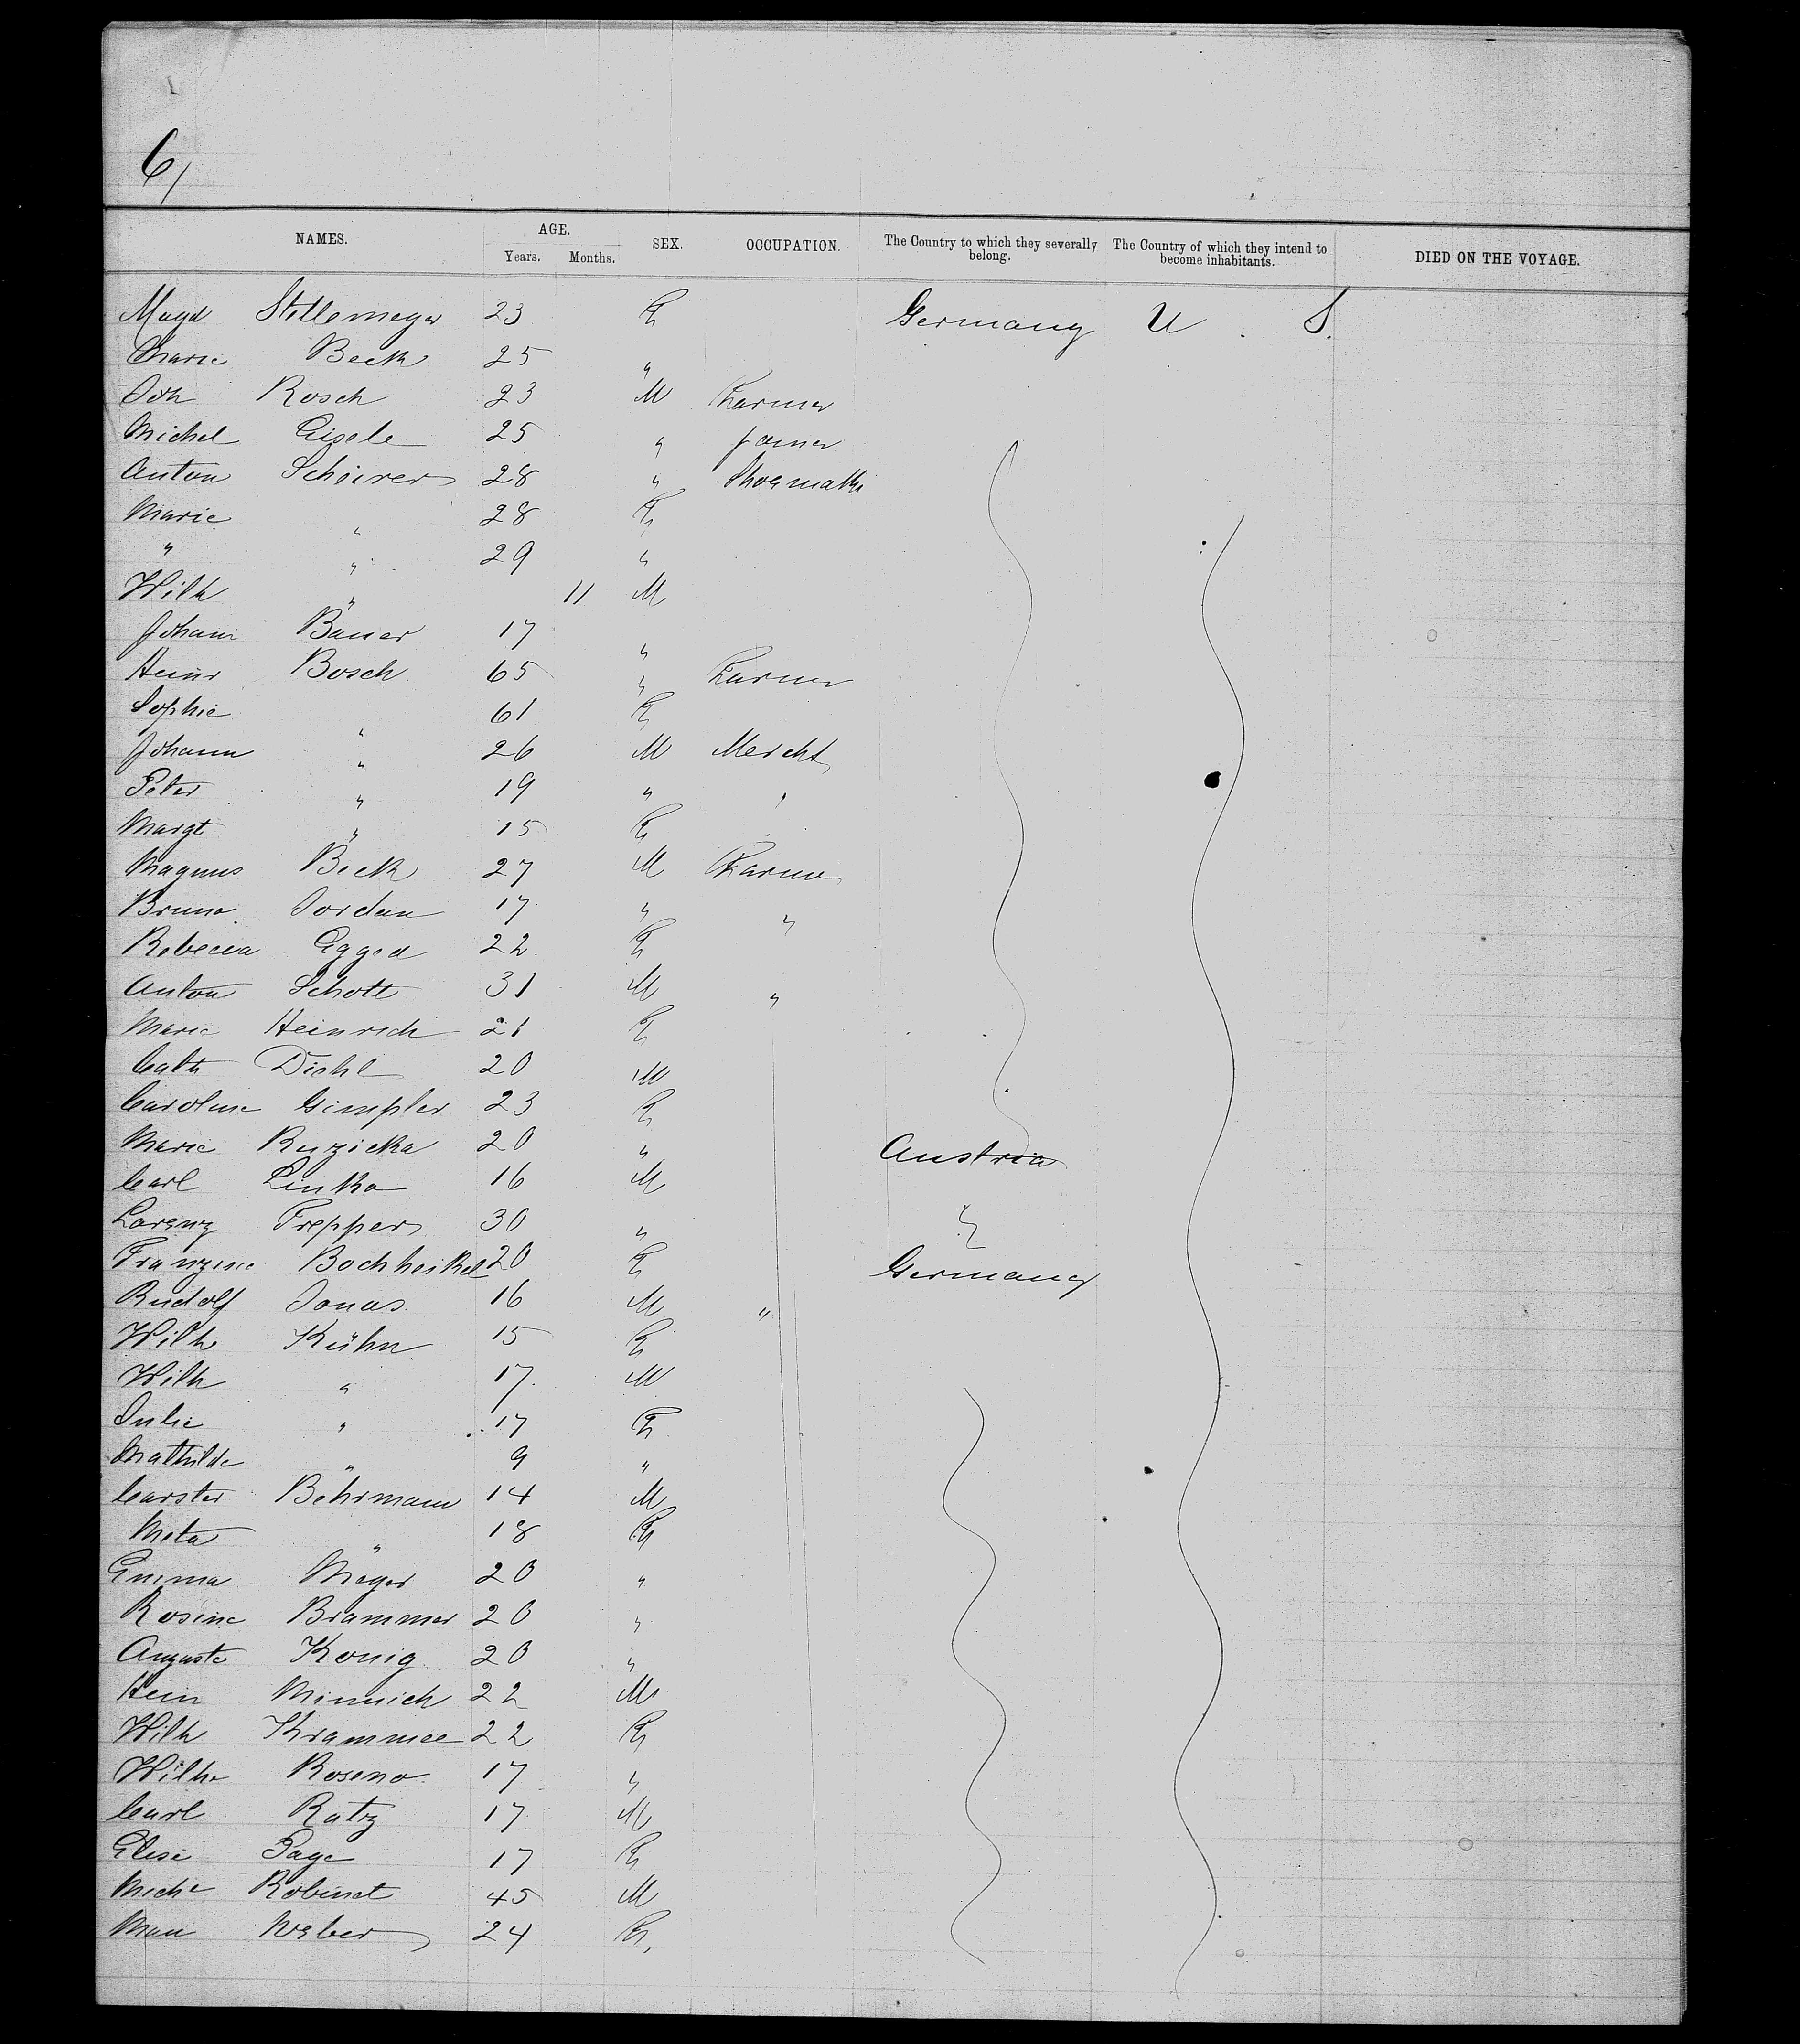 6/
NAMES. AGE. Years. Months. SEX. OCCUPATION. The Country to which they severally belong. The Country of which they intend to become inhabitants. DIED ON THE VOYAGE.
Magd Stellemeyer 23 F Germany U. S.
Marie Beck 25 "
Joh Rosch 23 M Farmer
Michel Eisele 25 " Joiner
Anton Scheirer 28 " Shoemaker
Marie " 28 F
" " 29 "
Wilh " 11 M
Johann Bauer 17 "
Heinr Bosch 65 " Farmer
Sophie " 61 F
Johann " 26 M Mercht
Peter " 19 " "
Margt " 15 F
Magnus Beck 27 M Farmer
Bruno Jordan 17 " "
Rebecca Egged 22 F
Anton Schott 31 M "
Marie Heinrich 21 F
Cath Diehl 20 M
Caroline Gimpler 23 F
Marie Ruzicka 20 " Austria
Carl Linka 16 M
Lorenz Trepper 30 " "
Franzine 20 F Germany
Rudolf Jonas 16 M "
Wilh Kühn 15 F
Wilh " 17 M
Julie " 17 F
Mathilde " 9 "
Carsten Behrmann 14 M
Meta " 18 F
Emma Meyer 20 "
Rosine Brammer 20 "
Auguste Konig 20 "
Hein Minnich 22 M
Wilh 22 F
Wilhe Roseno 17 "
Carl Ratz 17 M
Elise Page 17 F
Miche Robinet 45 M
Weber 24 F